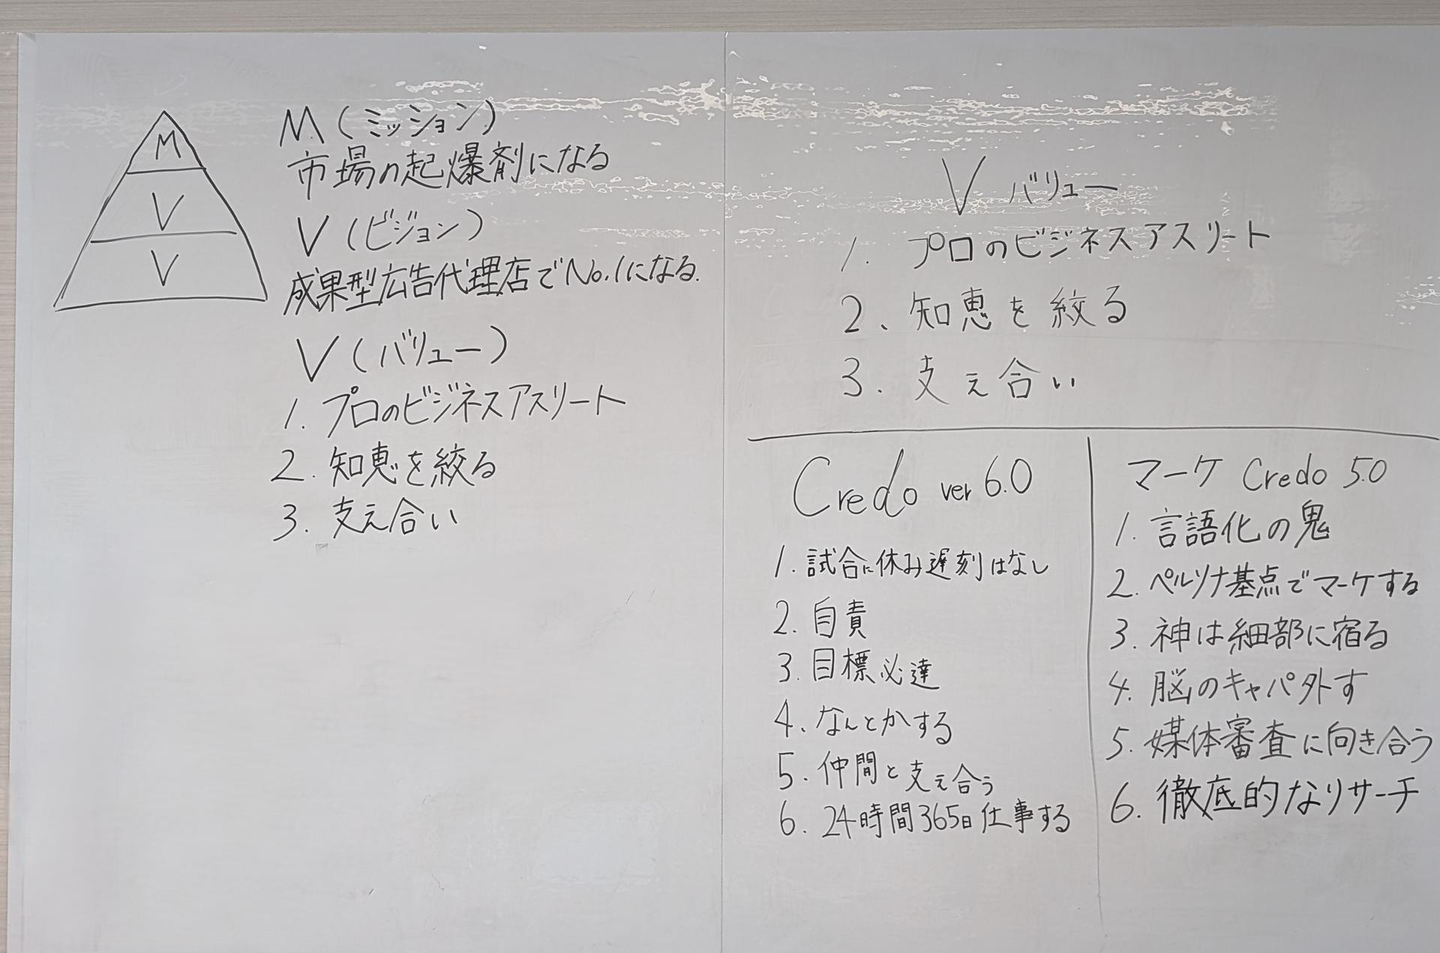 M
V
V
M(ミッション)
市場の起爆剤になる
V(ビジョン)
成果型広告代理店でNo.1になる.
V(バリュー)
1. プロのビジネスアスリート
2. 知恵を絞る
3. 支え合い
V バリュー
1. プロのビジネスアスリート
2、知恵を絞る
3. 支え合い
Credo ver 6.0
1. 試合に休み遅刻はなし
2. 自責
3. 目標必達
4、なんとかする
5. 仲間と支え合う
6. 24時間365日仕事する
マーケ Credo 5.0
1. 言語化の鬼
2. ペルソナ基点でマーケする
3. 神は細部に宿る
4. 脳のキャパ外す
5. 媒体審査に向き合う
6. 徹底的なリサーチ